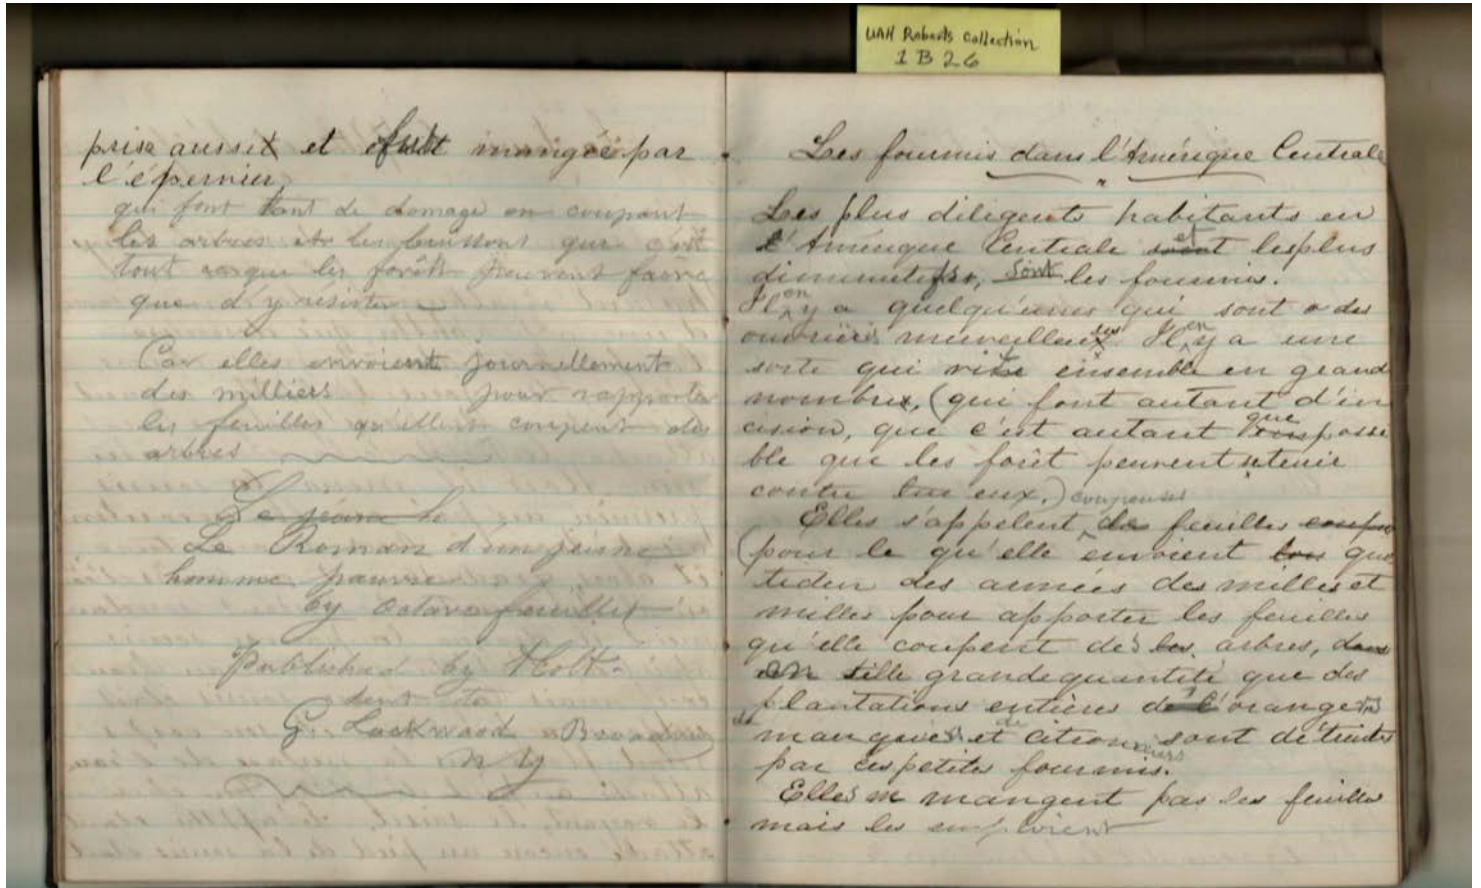 UAH Roberts Collection
1 B 26
prise aussit et fut mangée par
l'épervier,
qui font tant de domage en coupant
les arbres et les buissons que c'est
tout ce que les forêts peuvent faire
que d'y résister
Car elles envoient journellement
des milliers pour rapporter
les feuilles qu'elles coupent des
arbres
Le jeune h
Le Roman d'un jeune
homme pauvre
by Octave feuillet
Published by Holt
sent to
G. Lockwood
N Y
Les fourmis dans l'Amérique Centrale
Les plus diligents habitants en
l'Amérique Centrale et les plus
diminutifs, sont les fourmis.
Il en y a quelqu'unes qui sont des
merveilleuses Il en y a une
sorte qui vive ensemble en grand
nombre, (qui font autant d'in
cision, que c'est autant que possi
ble que les forêt peuvent retenir
contre eux.) coupeuses
Elles s'appelent de feuilles
(pour le qu'elle envoient que
des armées des milles et
milles pour apporter les feuilles
qu'elle coupent des les arbres, dans
en telle grande quantité que des
plantations entières de l'orangers
de manguiers et de citronniers sont détruites
par ces petites fourmis.
Elles mangent pas les feuilles
mais les emploient